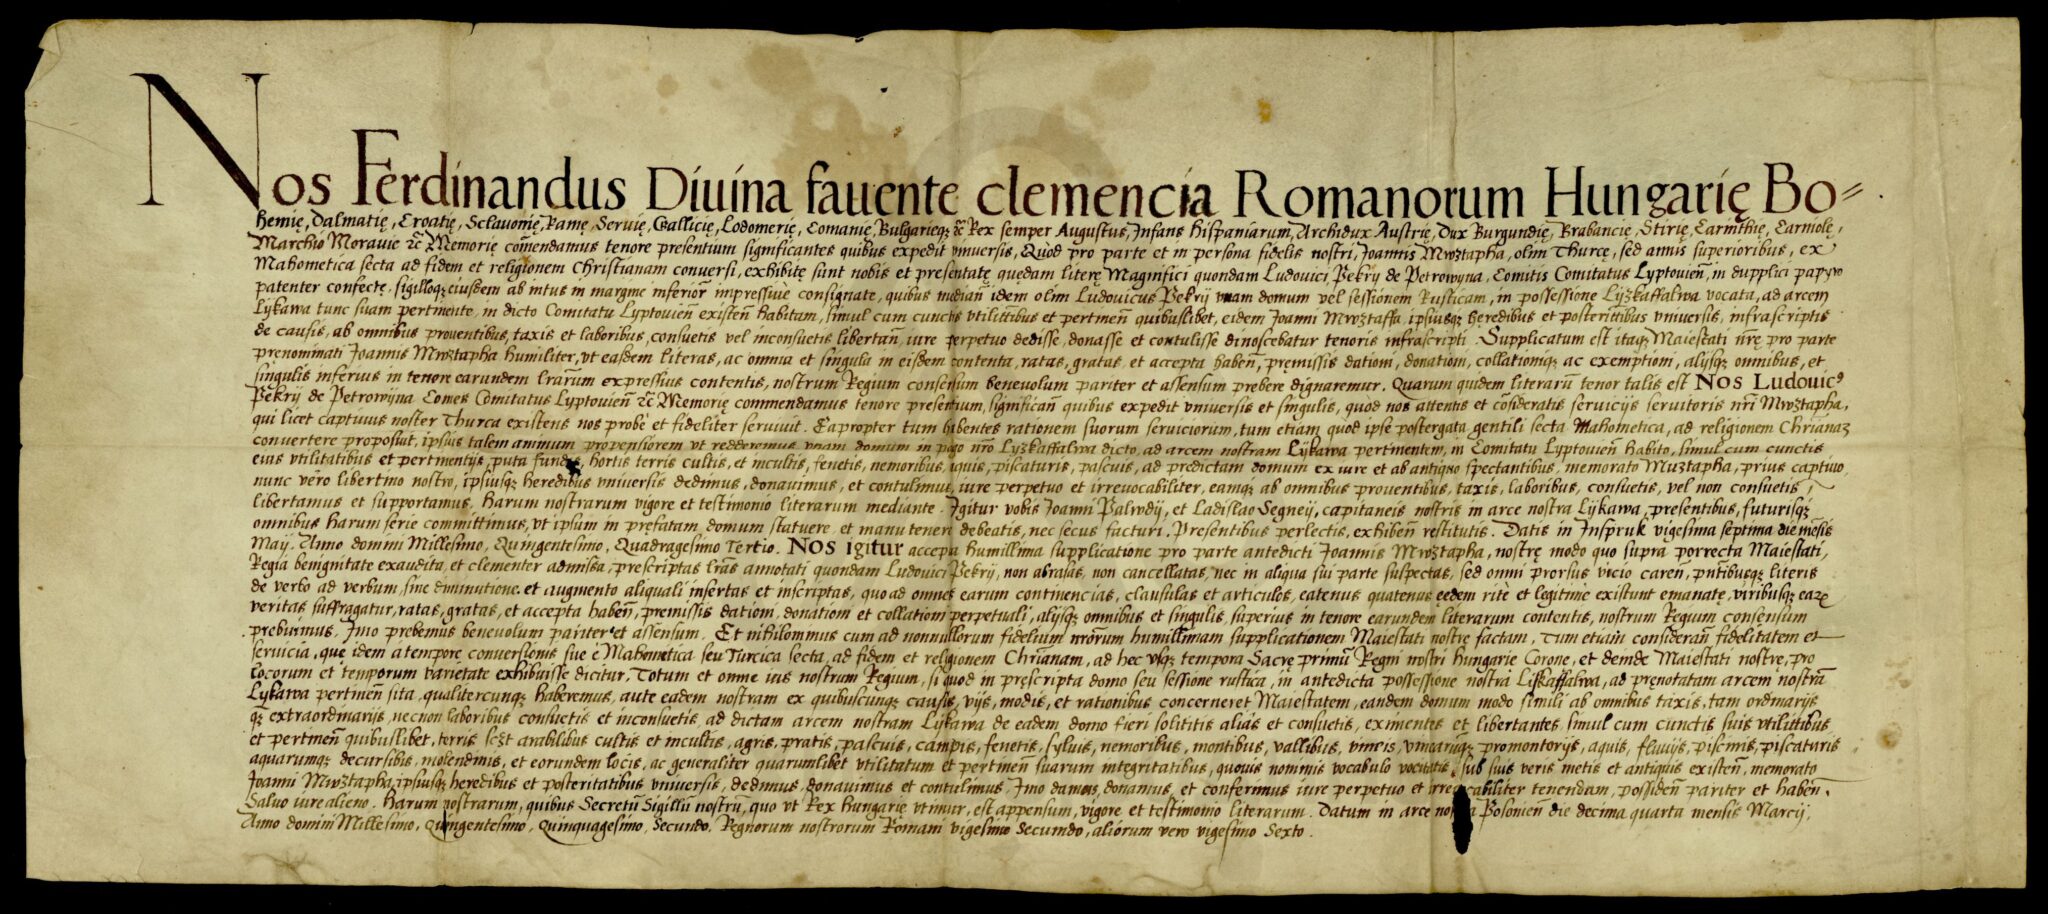 Nos Ferdinandus Diuina fauente clemencia Romanorum Hungarię Bo=
hemię, Dalmatię, Croatię, Sclauonię, Ramę, Seruię, Gallicię, Lodomerię, Comanię, Bulgarięqꝫ ꝛc̃ Rex semper Augustus, Infans Hispaniarum, Archidux Austrię, Dux Burgundię, Brabancię, Stirię, Carinthię, Carniolę,
Marchio Moravie ꝛc̃ Memorię com̃endamus tenore presentium significantes quibus expedit vniuersis, Quòd pro parte et in persona fidelis nostri, Joannis Mwztapha, olim Thurcę, sed annis superioribus, ex
Mahometica secta ad fidem et religionem Christianam conuersi, exhibitę sunt nobis et presentatę quędam literę Magnifici quondam Ludouici Pekry de Petrowyna, Comitis Comitatus Lyptouien̄, in dupplici papyro
patenter confectę, sigilloqꝫ eiusdem ab intus in margine inferiorj impressiuè consignate, quibus median̄ idem olim Ludouicus Pekrÿ vnam domum vel sessionem Rusticam, in possessione Lÿzkaffalwa vocata, ad arcem
Lÿkawa tunc suam pertinente, in dicto Comitatu Lyptouien̄ existen̄ habitam, simul cum cunctis vtilitibus et pertinen̄ quibuslibet, eidem Joanni Mwztaffa, ipsiusqꝫ hęredibus et posteritibus vniuersis, infrascriptis
de causis, ab omnibus prouentibus, taxis et laboribus, consuetis vel inconsuetis libertan̄, iure perpetuo dedisse, donasse et contulisse dinoscebatur tenoris infrascripti. Supplicatum est itaqꝫ Maiestati nr̄e pro parte
prenominati Joannis Mwztapha humiliter, vt easdem literas, ac omnia et singula in eisdem contenta, ratas, gratas, et accepta haben̄, pręmissis dationi, donationi, collationiqꝫ ac exemptioni, alijsqꝫ omnibus, et
singulis inferius in tenore earundem lr̄arum expressius contentis, nostrum Regium consensum beneuolum pariter et assensum prebere dignaremur. Quarum quidem literarū tenor talis est Nos Ludouicꝰ
Pekrij de Petrowyna Comes Comitatus Lyptouien̄ ꝛc̃ Memorię commendamus tenore presentium, significan̄ quibus expedit vniuersis et singulis, quòd nos attentis et cōsideratis seruicijs seruitoris nr̄i Mwztapha,
qui licet captiuus noster Thurca existens nos probè et fideliter seruiuit. Eapropter tum habentes rationem suorum seruiciorum, tum etiam quod ipse postergata gentili secta Mahometica, ad religionem Chrīanaꝫ
conuertere proposuit, ipsius talem animum propensiorem vt redderemus vnam domum in pago nr̄o Lyzkaffalwa dicto, ad arcem nostram Lÿkawa pertinentem, in Comitatu Lyptouien̄ habito, simul cum cunctis
eius vtilitatibus et pertinentijs, puta fundis, hortis terris cultis, et incultis, fenetis, nemoribus, aquis, piscaturis, pascuis, ad predictam domum ex iure et ab antiquo spectantibus, memorato Muztapha, prius captiuo,
nunc vero libertino nostro, ipsiusqꝫ heredibus vniuersis dedimus, donauimus, et contulimus iure perpetuo et irreuocabiliter, eamqꝫ ab omnibus prouentibus, taxis, laboribus, consuetis, vel non consuetis,
libertamus et supportamus, harum nostrarum vigore et testimonio literarum mediante. Igitur vobis Joanni Palwdij, et Ladislao Segneij, capitaneis nostris in arce nostra Lÿkawa, presentibus, futurisqꝫ
omnibus harum serie committimus, vt ipsum in prefatam domum statuere et manuteneri debeatis, nec secus facturi. Presentibus perlectis, exhiben̄ restitutis. Datis in Inspruk vigesima septima die mēsis
Maij. Anno domini Millesimo, Quingentesimo, Quadragesimo Tertio. Nos igitur accepta humillima supplicatione pro parte antedicti Joannis Mwztapha, nostrę modo quo supra porrecta Maiestati,
Regia benignitate exaudita, et clementer admissa, prescriptas lr̄as annotati quondam Ludouici Pekrij, non abrasas, non cancellatas, nec in aliqua sui parte suspectas, sed omni prorsus vicio caren̄, pn̄tibusqꝫ literis
de verbo ad verbum, sine diminutione et augmento aliquali insertas et inscriptas, quo ad omnes earum continencias, clausulas et articulos, eatenus quatenus eędem ritè et legitimè existunt emanatę, viribusqꝫ earꝫ
veritas suffragatur, ratas, gratas, et accepta haben̄, pręmissis dationi, donationi et collationi perpetuali, alijsqꝫ omnibus et singulis, superius in tenore earundem literarum contentis, nostrum Regium consensum
prebuimus. Imo prebemus beneuolum pariter et assensum. Et nihilominus cum ad nonnullorum fidelium nr̄orum humillimam supplicationem Maiestati nostrę factam, Tum etiam consideran̄ fidelitatem et
seruicia, que idem a tempore conuersionis sue è Mahometica seu Turcica secta, ad fidem et religionem Chrīanam, ad hec vsqꝫ tempora Sacrę primū Regni nostri Hungarię Coronę, et deinde Maiestati nostrę, pro
locorum et temporum varietate exhibuisse dicitur, Totum et omne ius nostrum Regium, si quod in prescripta domo seu sessione rustica, in antedicta possessione nostra Liskaffalwa, ad prenotatam arcem nostrā
Lykawa pertinen̄ sita, qualitercunqꝫ haberemus, aut eadem nostram ex quibuscunqꝫ causis, vijs, modis, et rationibus concerneret Maiestatem, eandem domum modo simili ab omnibus taxis, tam ordinarijs
qꝫ extraordinarijs, necnon laboribus consuetis et inconsuetis ad dictam arcem nostram Lÿkawa de eadem domo fieri solititis aliàs et consuetis, eximentes et libertantes, simul cum cunctis suis vtilitibus
et pertinen̄ quibuslibet, terris sczt arabilibus cultis et incultis, agris, pratis, pascuis, campis, fenetis, syluis, nemoribus, montibus, vallibus, vineis, vinearūqꝫ promontorijs, aquis, fluuijs, piscinis, piscaturis
aquarumqꝫ decursibus, molendinis, et eorundem locis, ac generaliter quarumlibet vtilitatum et pertinen̄ suarum integritatibus, quouis nominis vocabulo vocitatis, sub suis veris metis et antiquis existen̄, memorato
Joanni Mwztapha, ipsiusqꝫ heredibus et posteritatibus vniuersis, dedimus, donauimus et contulimus. Imo damus, donamus, et conferimus iure perpetuo et irreuocabiliter tenendam, possiden̄ pariter et haben̄.
Saluo iure alieno. Harum nostrarum, quibus Secretū Sigillū nostrū, quo vt Rex Hungarię vtimur, est appensum, vigore et testimonio literarum. Datum in arce nostra Posonien̄ die decima quarta mensis Marcij,
Anno domini Millesimo, Quingentesimo, Quinquagesimo, Secundo, Regnorum nostrorum Romani vigesimo Secundo, aliorum vero vigesimo Sexto.